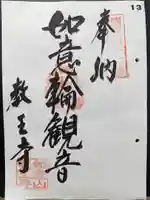 13
奉納
如意輪観音
教王寺